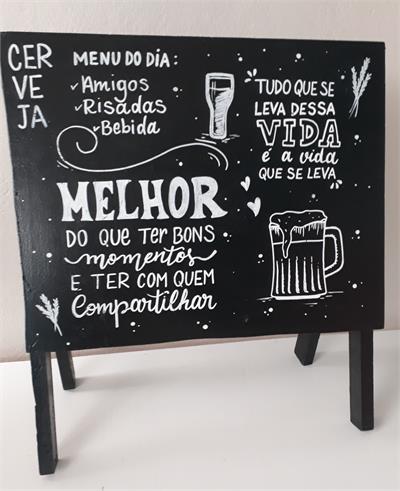 CER
VE
JA
MENU DO DIA:
✓Amigos
✓Risadas
✓Bebida
"TUDO QUE SE
LEVA DESSA
VIDA
é a vida
QUE SE LEVA"
MELHOR
DO QUE TER BONS
momentos
E TER COM QUEM
Compartilhar